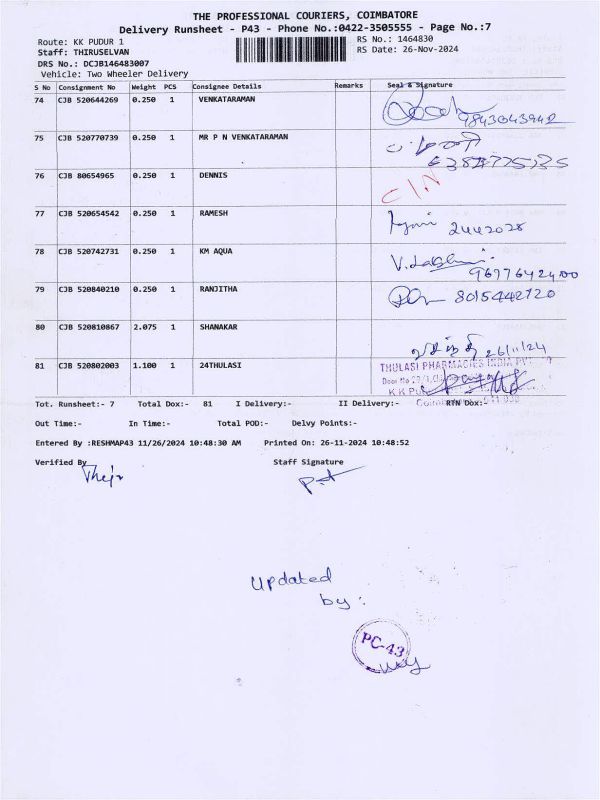 THE PROFESSIONAL COURIERS, COIMBATORE
Delivery Runsheet - P43 - Phone No.:0422-3505555 - Page No.:7
Route: KK PUDUR 1 RS No.: 1464830
Staff: THIRUSELVAN RS Date: 26-Nov-2024
DRS No.: DCJB146483007
Vehicle: Two Wheeler Delivery
S No Consignment No Weight PCS Consignee Details Remarks Seal & Signature
74 CJB 520644269 0.250 1 VENKATARAMAN
75 CJB 520770739 0.250 1 MR P N VENKATARAMAN
76 CJB 80654965 0.250 1 DENNIS
77 CJB 520654542 0.250 1 RAMESH 2442028
78 CJB 520742731 0.250 1 KM AQUA
79 CJB 520840210 0.250 1 RANJITHA 8015442720
80 CJB 520810867 2.075 1 SHANAKAR 26/11/24
81 CJB 520802003 1.100 1 24THULASI THULASI PHARMACIES INDIA
Tot. Runsheet:- 7 Total Dox:- 81 I Delivery:- II Delivery:- RTN Dox:-
Out Time:- In Time:- Total POD:- Delvy Points:-
Entered By :RESHMAP43 11/26/2024 10:48:30 AM Printed On: 26-11-2024 10:48:52
Verified By Staff Signature
Updated
by:
PC-43